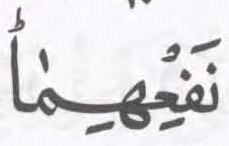 نَفْعِهِمَاؕ